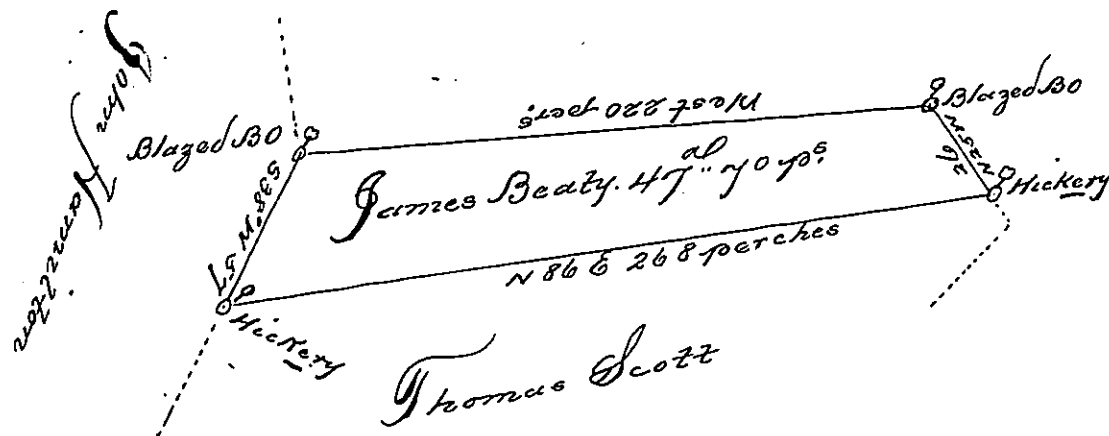 John Hamilton
Blazed BO
West 220 pers
Blazed BO
S38°W 57
James Beaty. 47ac" 70 ps.
N23W 26
Hickery
N 86 E 268 perches
Hickery
Thomas Scott